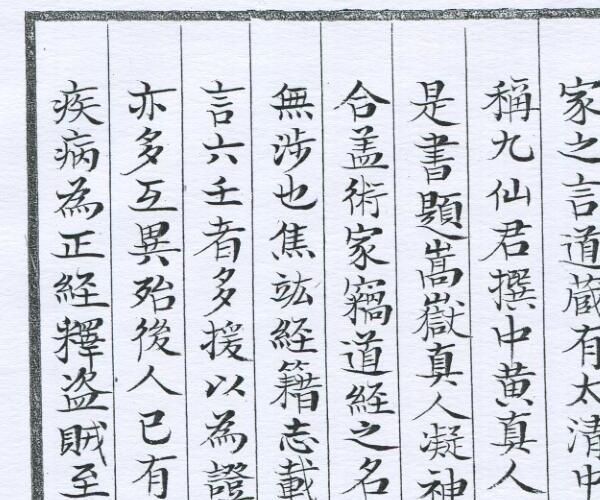 家之言道蔵有太清中
稱九仙君撰中黄真人
是書題嵩嶽真人凝神
合盖術家竊道經之名
無渉也焦竑経籍志載
言六壬者多援以為證
亦多互異殆後人已有
疾病為正経釋盗賊至